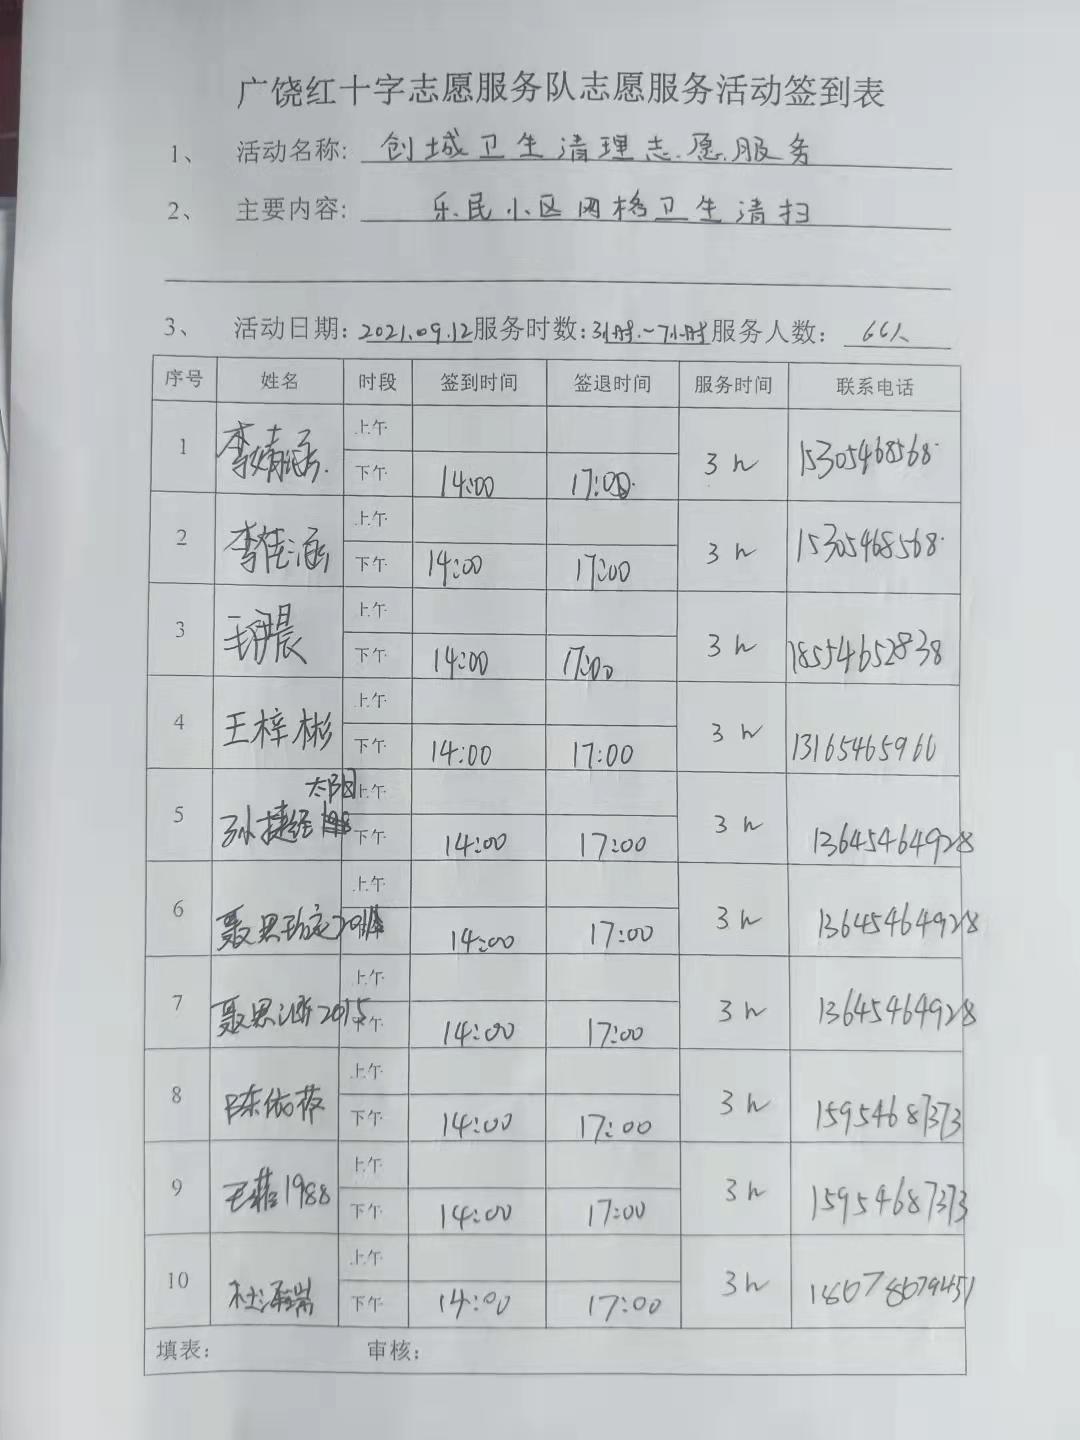 广饶红十字志愿服务队志愿服务活动签到表
1、 活动名称: 创城卫生清理志愿服务
2、 主要内容: 乐民小区网格卫生清扫
3、 活动日期: 2021.09.12 服务时数: 3小时~7小时 服务人数: 66人
序号 姓名 时段 签到时间 签退时间 服务时间 联系电话
上午
1 李婧涵 3h 15305468568
下午 14:00 17:00
上午
2 李佳涵 3h 15305468568
下午 14:00 17:00
上午
3 晨 3h 18554652838
下午 14:00 17:00
上午
4 王梓彬 3h 13165465966
下午 14:00 17:00
太阳园 上午
5 孙捷经 3h 13645464928
下午 14:00 17:00
上午
6 聂思 3h 13645464928
14:00 17:00
上午
7 聂思 2015 3h 13645464928
下午 14:00 17:00
上午
8 陈依依 3h 15954687373
下午 14:00 17:00
上午
9 王 1988 3h 15954687373
下午 14:00 17:00
上午
10 杜 3h 18678679451
下午 14:00 17:00
填表: 审核: